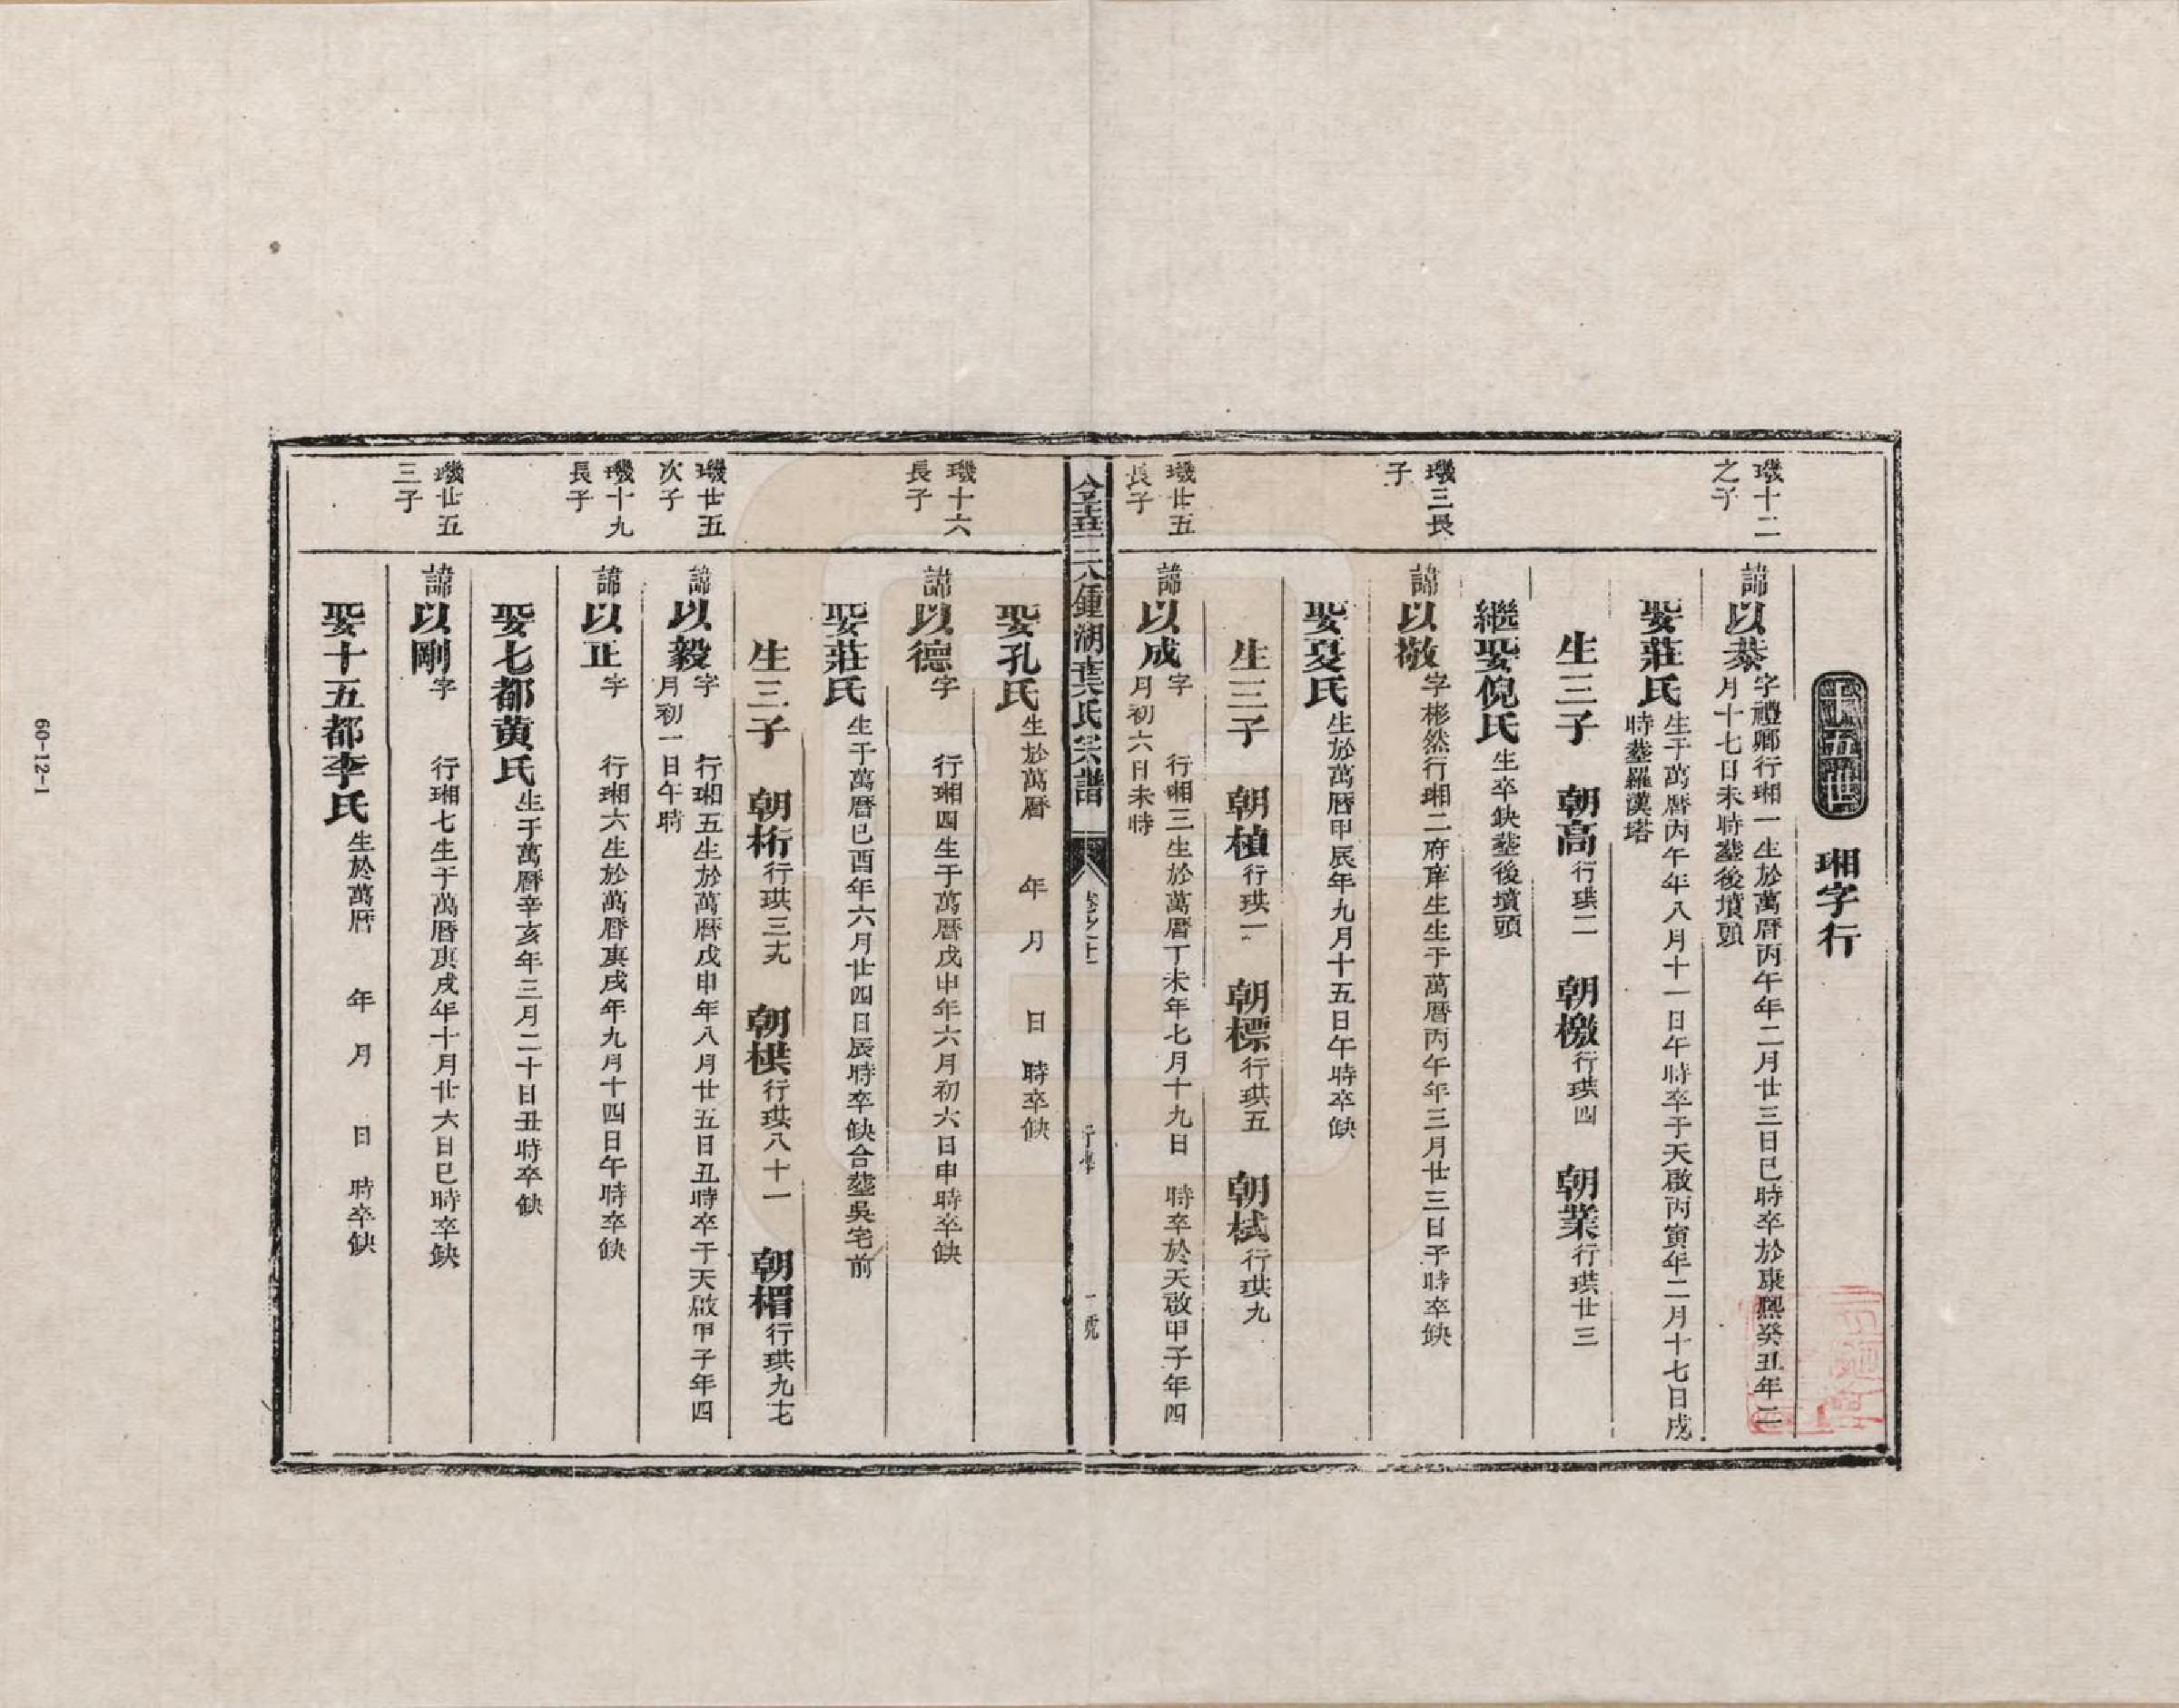 十五世
㻑字行
璣十二
之子
諱以恭字禮卿行㻑一生於萬曆丙午年二月廿三日巳時卒於康熙癸丑年二
月十七日未時塟後墳頭
娶莊氏生于萬曆丙午年八月十一日午時卒于天啟丙寅年二月十七日戌
時塟羅漢塔
生三子 朝高行珙二 朝檄行珙四 朝業行珙廿三
繼娶倪氏生卒缺塟後墳頭
璣三長
子
諱以敬字彬然行㻑二府庠生生于萬曆丙午年三月廿三日子時卒缺
娶夏氏生於萬曆甲辰年九月十五日午時卒缺
生三子 朝楨行珙一 朝標行珙五 朝栻行珙九
璣廿五
長子
諱以成字 行㻑三生於萬曆丁未年七月十九日 時卒於天啟甲子年四
月初六日未時
金華二六鍾湖葉氏宗譜 卷之十二 行傳 一號
娶孔氏生於萬曆 年 月 日 時卒缺
璣十六
長子
諱以德字 行㻑四生于萬曆戊申年六月初六日申時卒缺
娶莊氏生于萬曆己酉年六月廿四日辰時卒缺合塟吳宅前
生三子 朝桁行珙三十九 朝栱行珙八十一 朝楣行珙九十七
璣廿五
次子
諱以毅字 行㻑五生於萬曆戊申年八月廿五日丑時卒于天啟甲子年四
月初一日午時
璣十九
長子
諱以正字 行㻑六生於萬曆庚戌年九月十四日午時卒缺
娶七都黃氏生于萬曆辛亥年三月二十日丑時卒缺
璣廿五
三子
諱以剛字 行㻑七生于萬曆庚戌年十月廿六日巳時卒缺
娶十五都李氏生於萬曆 年 月 日 時卒缺
60-12-1